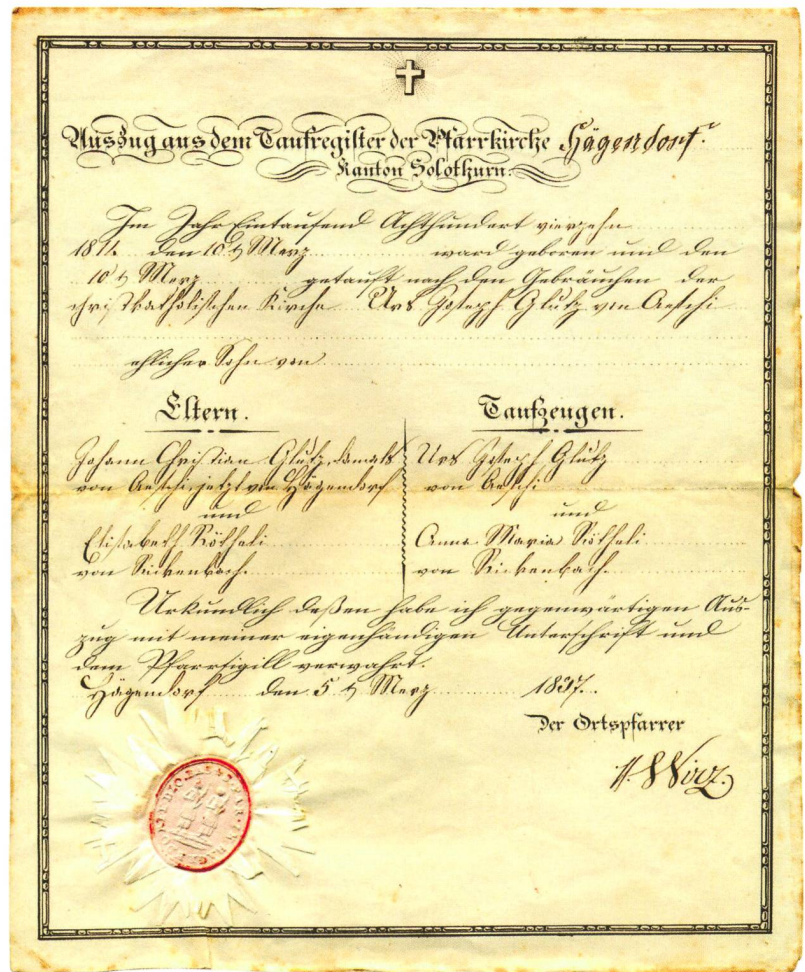 Auszug aus dem Taufregister der Pfarrkirche Hägendorf.
Kanton Solothurn.
Im Jahr Eintausend Achthundert vierzehn
1814 den 10t Merz ward geboren und den
10t Merz getauft nach den Gebräuchen der
christkatholischen Kirche Urs Joseph Glutz von Aeschi
ehlicher Sohn von
Eltern.
Johann Christian Glutz, damals
von Aeschi, jetzt von Hägendorf
und
Elisabeth Rötheli
von Rickenbach.
Taufzeugen.
Urs Joseph Glutz
von Aeschi
und
Anna Maria Rötheli
von Rickenbach.
Urkundlich deßen habe ich gegenwärtigen Aus-
zug mit meiner eigenhändigen Unterschrift und
dem Pfarrsigill verwahrt.
Hägendorf den 5t Merz 1837.
Der Ortspfarrer
Wirz